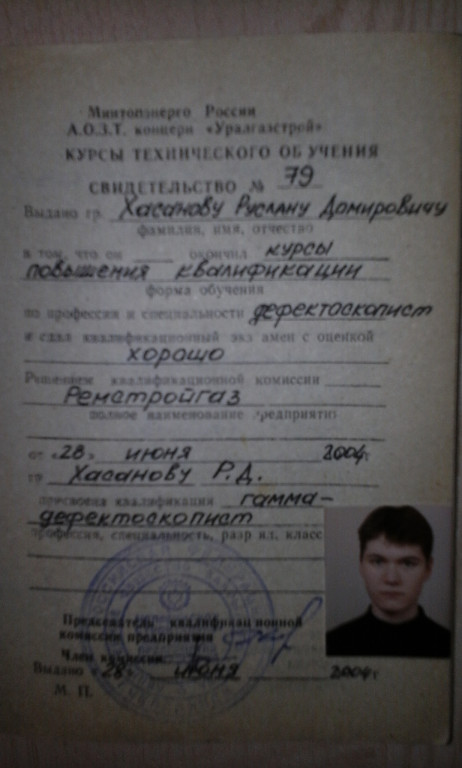 Минтопэнерго России
А.О.З.Т. концерн «Уралгазстрой»
КУРСЫ ТЕХНИЧЕСКОГО ОБУЧЕНИЯ
СВИДЕТЕЛЬСТВО № 79
Выдано гр. Хасанову Руслану Домировичу
фамилия, имя, отчество
в том, что он окончил курсы
повышения квалификации
форма обучения
по профессии и специальности дефектоскопист
и сдал квалификационный экзамен с оценкой
хорошо
Решением квалификационной комиссии
Ремстройгаз
полное наименование предприятия
от «28» июня 2004г
гр. Хасанову Р.Д.
присвоена квалификация гамма-
дефектоскопист
профессия, специальность, разряд, класс
Председатель квалификационной
комиссии предприятия
Член комиссии
Выдано «28» июня 2004г
М. П.